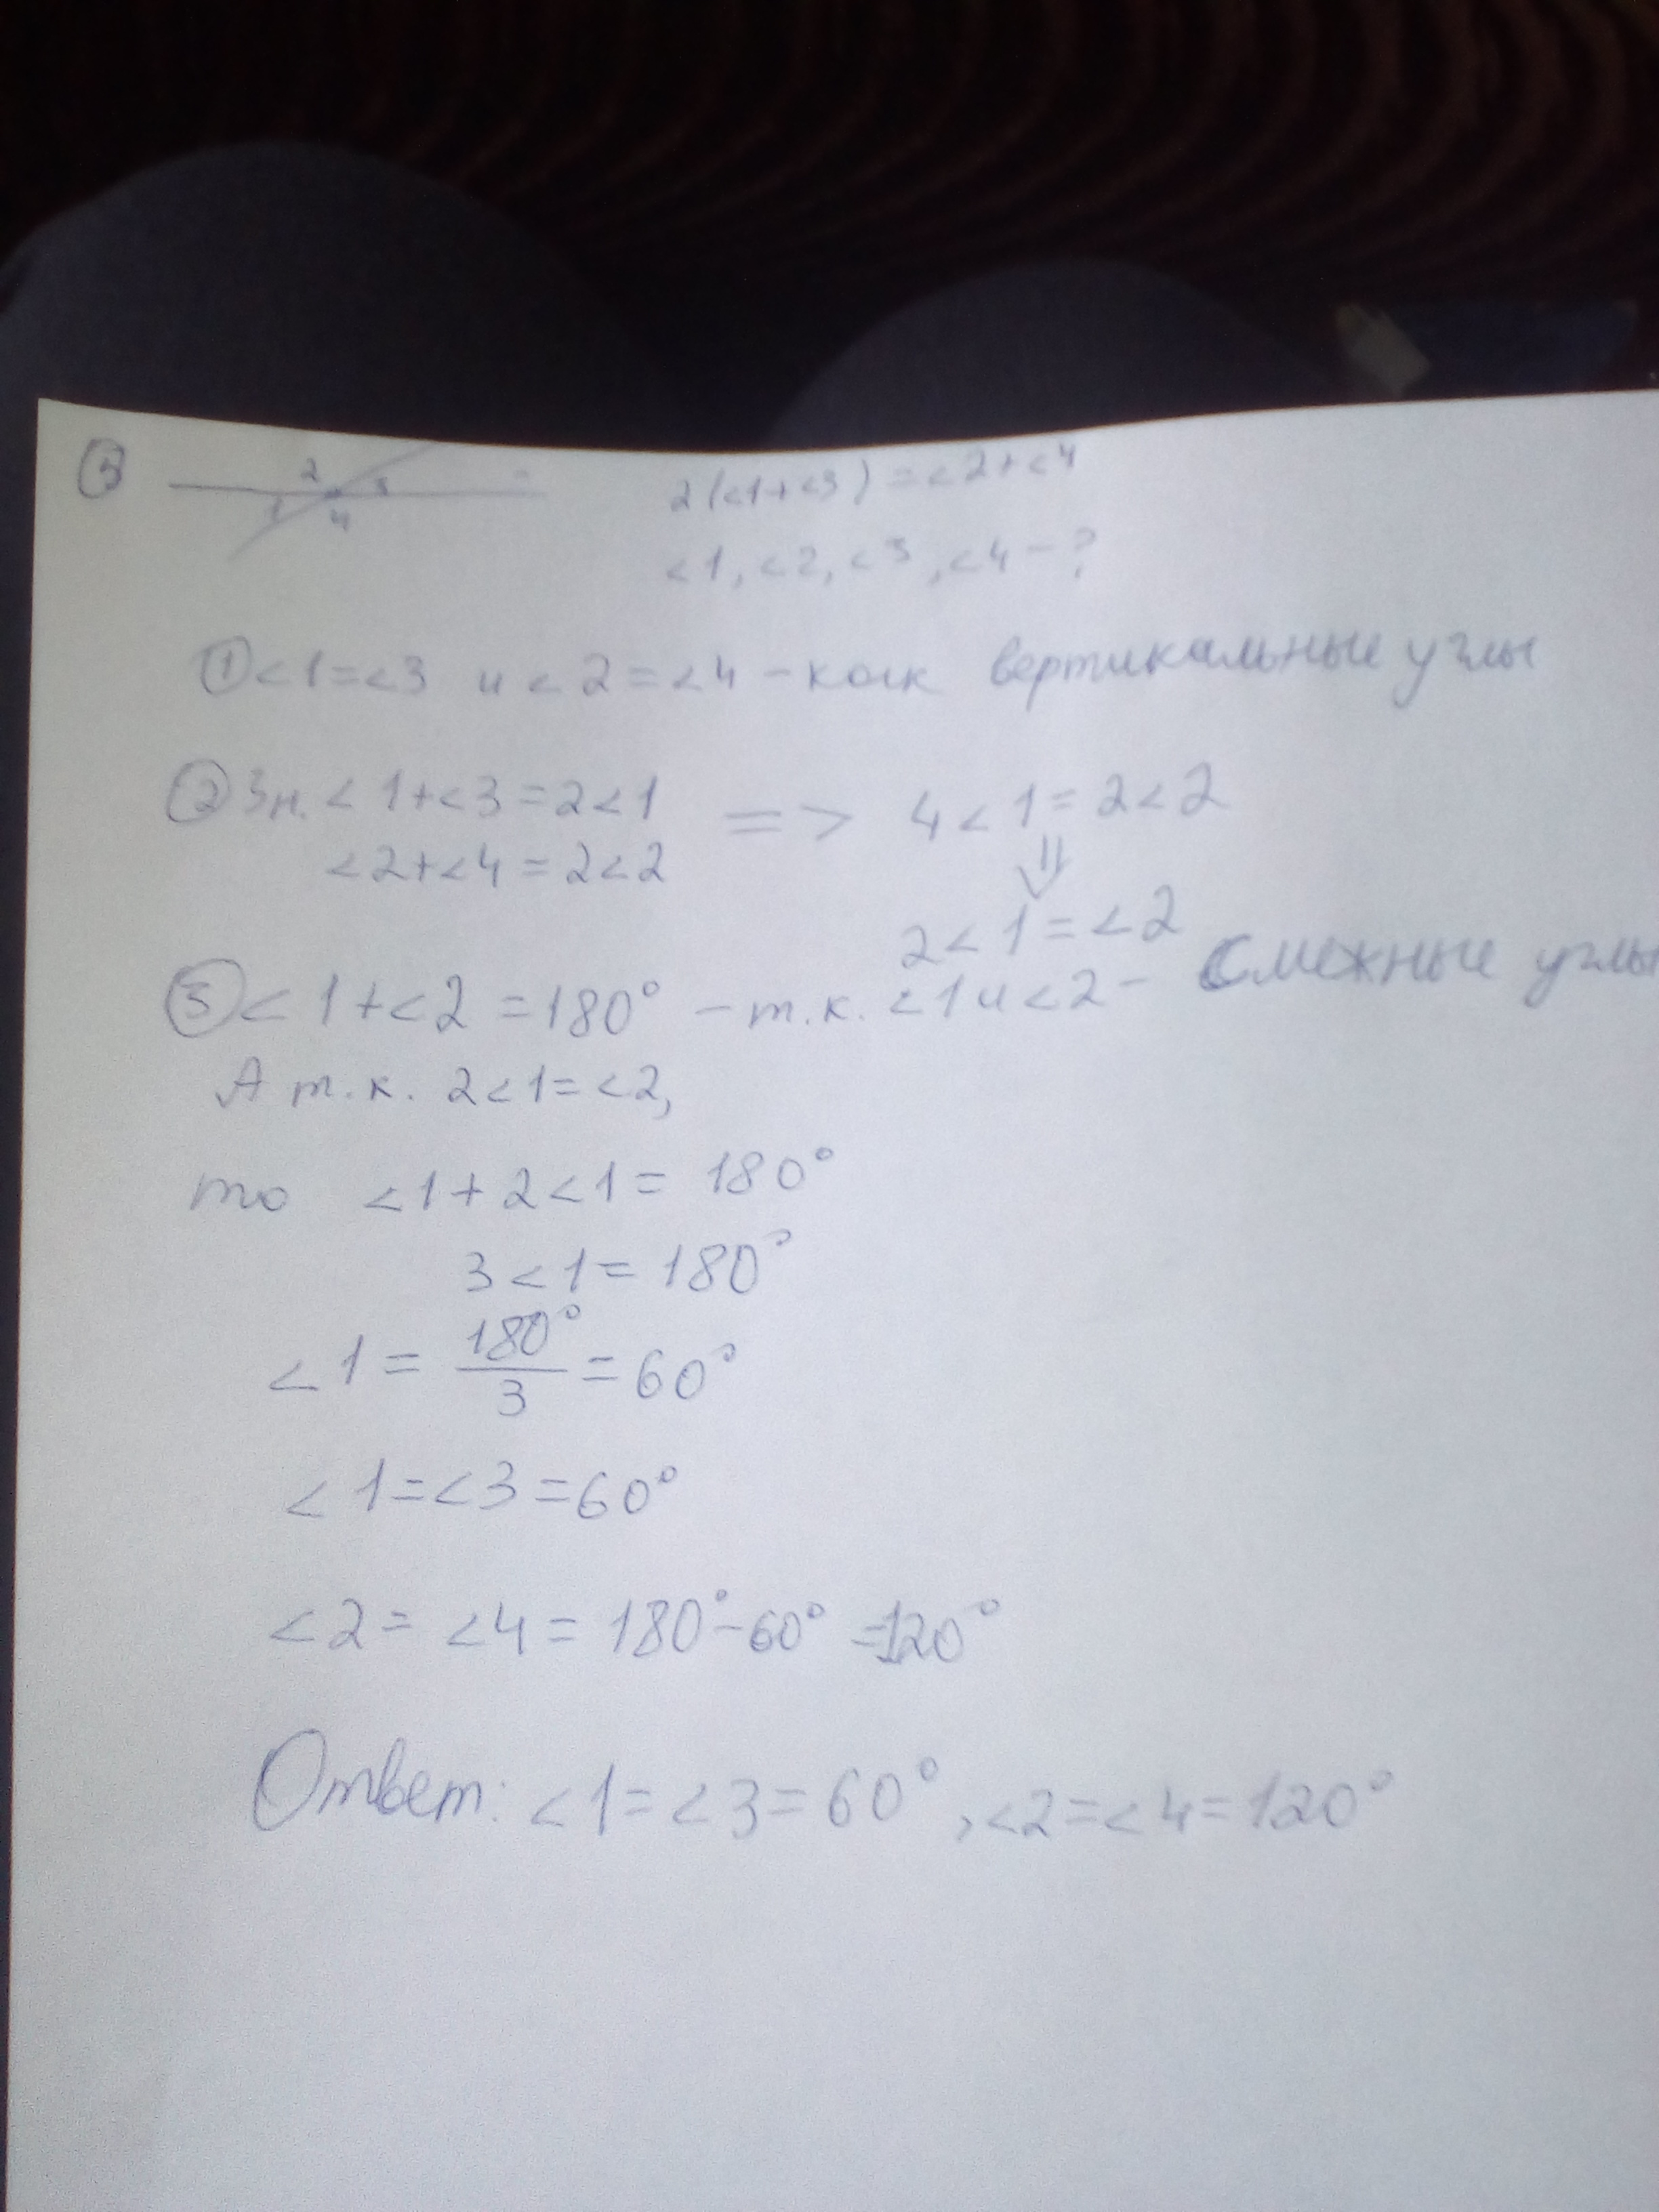 3
2 3
1 4
2(<1+<3) = <2+<4
<1, <2, <3, <4 - ?
① <1=<3 и <2=<4 - как вертикальные углы
② Зн. <1+<3=2<1 => 4<1=2<2
<2+<4=2<2 ⇓
2<1=<2
③ <1+<2=180° - т.к. <1 и <2 - Смежные углы
А т.к. 2<1=<2,
то <1+2<1= 180°
3<1= 180°
<1= 180°/3 = 60°
<1=<3=60°
<2= <4= 180°-60° =120°
Ответ: <1=<3=60°, <2=<4=120°